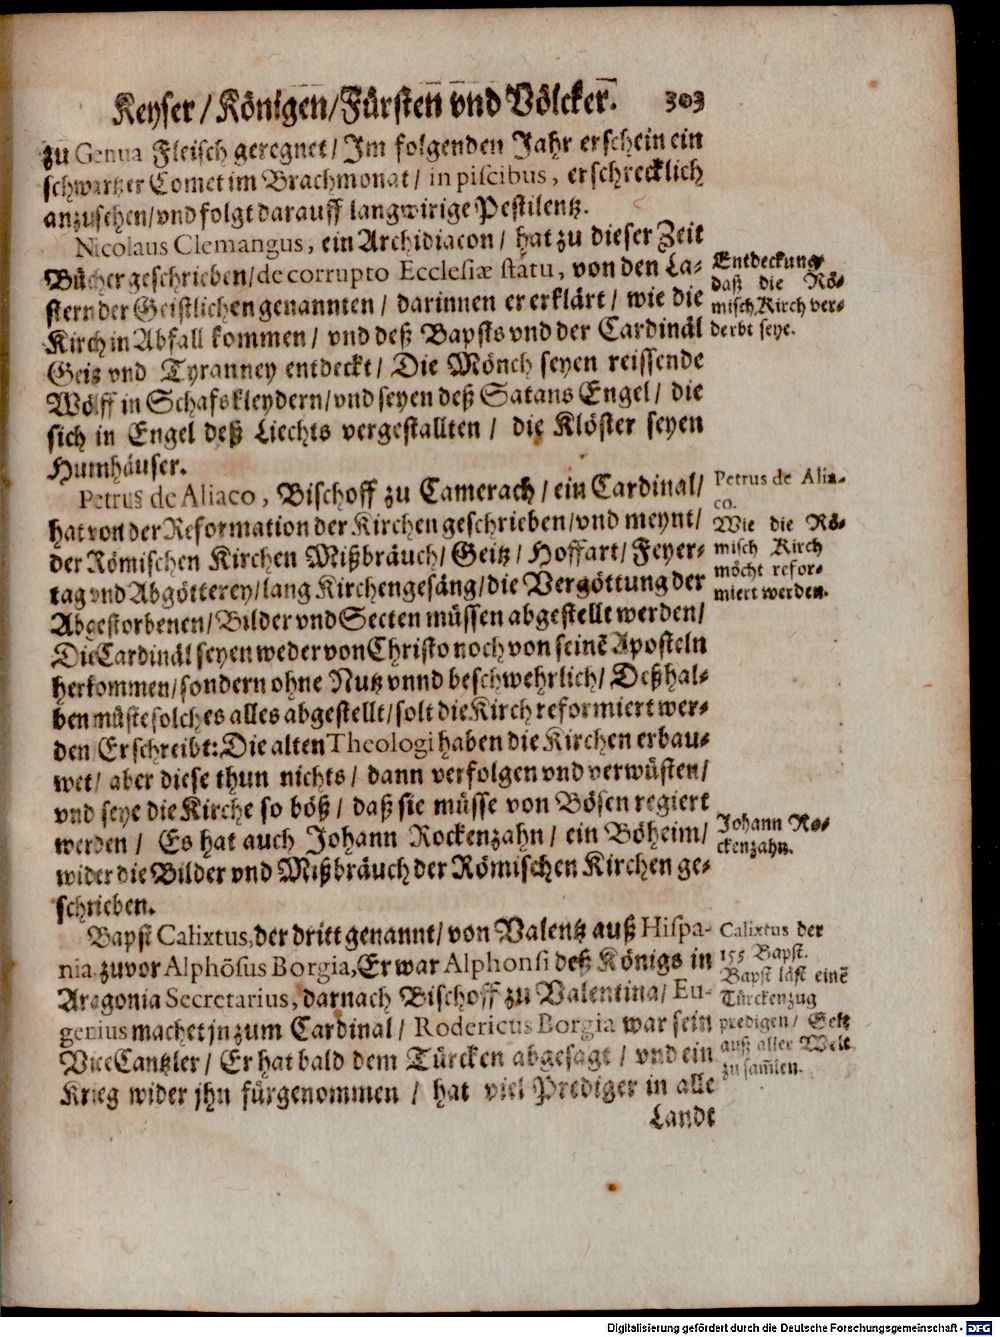 Keyser / Königen / Fürsten vnd Völcker. 303
zu Genua Fleisch geregnet / Im folgenden Jahr erschein ein
schwartzer Comet im Brachmonat / in piscibus, erschrecklich
anzusehen / vnd folgt darauff langwirige Pestilentz.
Nicolaus Clemangus, ein Archidiacon / hat zu dieser Zeit
Bücher geschrieben / de corrupto Ecclesiæ statu, von den La-
stern der Geistlichen genannten / darinnen er erklärt / wie die
Kirch in Abfall kommen / vnd deß Bapsts vnd der Cardinäl
Geiz vnd Tyranney entdeckt / Die Mönch seyen reissende
Wölff in Schafskleydern / vnd seyen deß Satans Engel / die
sich in Engel deß Liechts vergestallten / die Klöster seyen
Humhäuser.
Entdeckung
daß die Rö-
misch Kirch ver-
derbt seye.
Petrus de Aliaco, Bischoff zu Camerach / ein Cardinal /
hat von der Reformation der Kirchen geschrieben / vnd meynt /
der Römischen Kirchen Mißbräuch / Geitz / Hoffart / Feyer-
tag vnd Abgötterey / lang Kirchengesäng / die Vergöttung der
Abgestorbenen / Bilder vnd Secten müssen abgestellt werden /
Die Cardinäl seyen weder von Christo noch von seinē Aposteln
herkommen / sondern ohne Nutz vnnd beschwehrlich / Deßhal-
ben müste solches alles abgestellt / solt die Kirch reformiert wer-
den Er schreibt: Die alten Theologi haben die Kirchen erbau-
wet / aber diese thun nichts / dann verfolgen vnd verwüsten /
vnd seye die Kirche so böß / daß sie müsse von Bösen regiert
werden / Es hat auch Johann Rockenzahn / ein Böheim /
wider die Bilder vnd Mißbräuch der Römischen Kirchen ge-
schrieben.
Petrus de Alia-
co.
Wie die Rö-
misch Kirch
möcht refor-
miert werden.
Johann Ro-
ckenzahn.
Bapst Calixtus, der dritt genannt / von Valentz auß Hispa-
nia. zuvor Alphōsus Borgia, Er war Alphonsi deß Königs in
Aragonia Secretarius, darnach Bischoff zu Valentina / Eu-
genius machet jn zum Cardinal / Rodericus Borgia war sein
ViceCantzler / Er hat bald dem Türcken abgesagt / vnd ein
Krieg wider jhn fürgenommen / hat viel Prediger in alle
Lande
Calixtus der
155 Bapst.
Bapst läst einē
Türckenzug
predigen / Gelt
auß aller Welt
zu sam̄len.
Digitalisierung gefördert durch die Deutsche Forschungsgemeinschaft - DFG